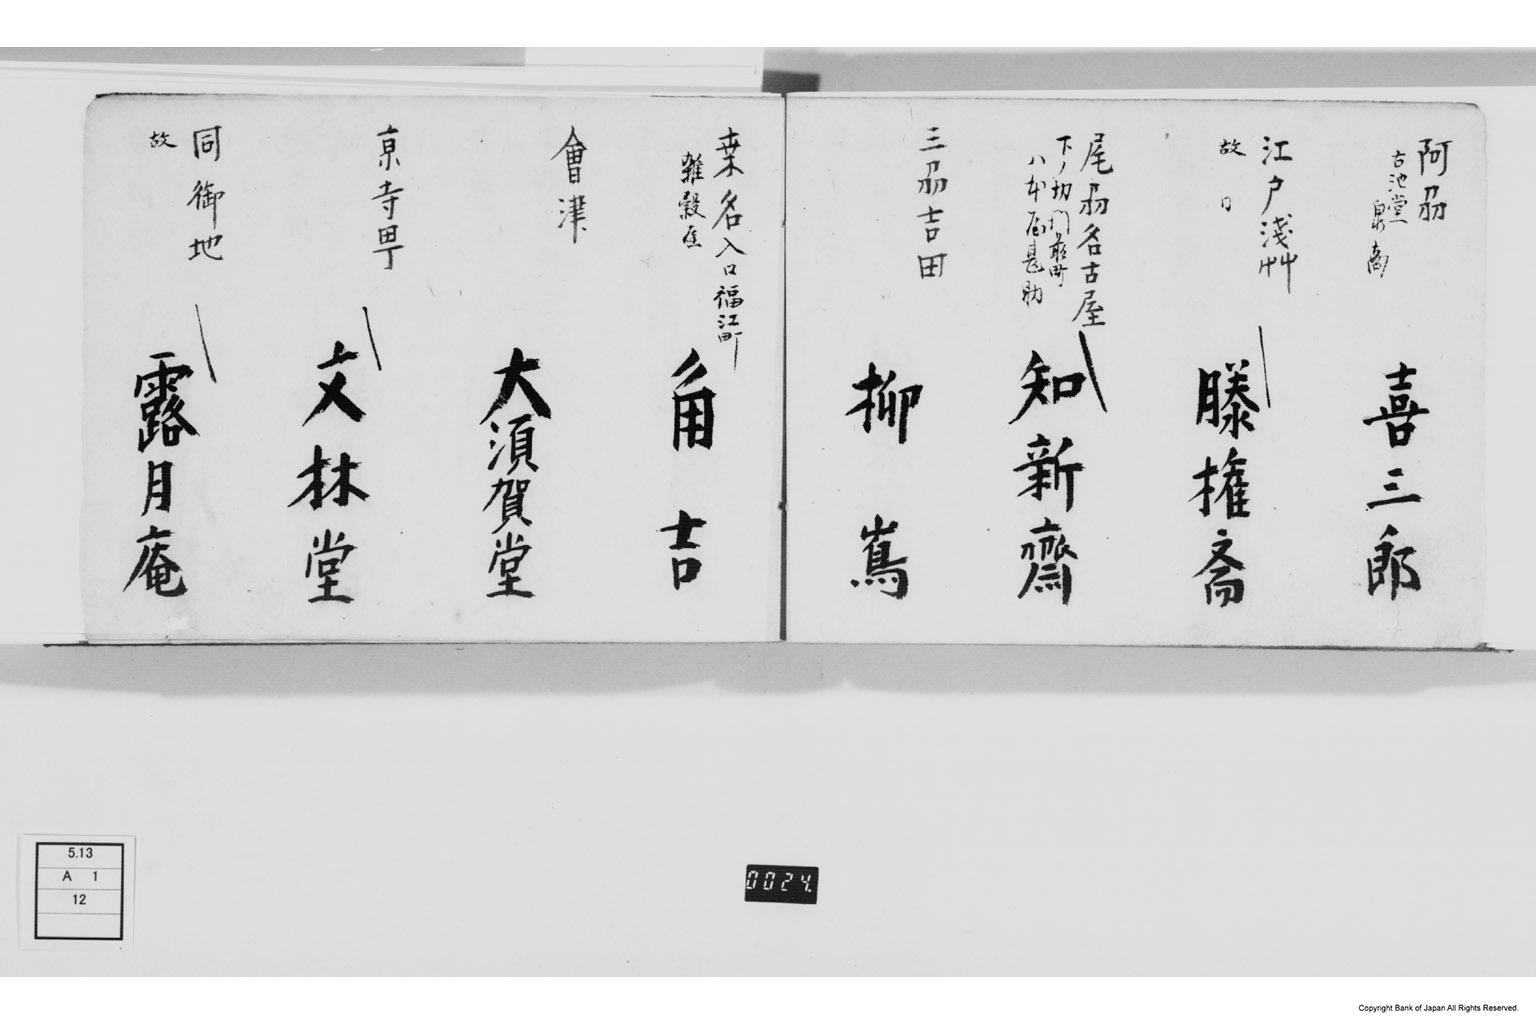 阿刕
古池堂
喜三郎
江戸浅艸
故
滕権斎
尾刕名古屋
下ノ切
八本屋甚助
知新齋
三刕吉田
柳嶌
桒名入口福江町
雑穀屋
角吉
會津
大須賀堂
京寺町
文林堂
同御地
故
露月庵
5.13
A 1
12
0024
Copyright Bank of Japan All Rights Reserved.